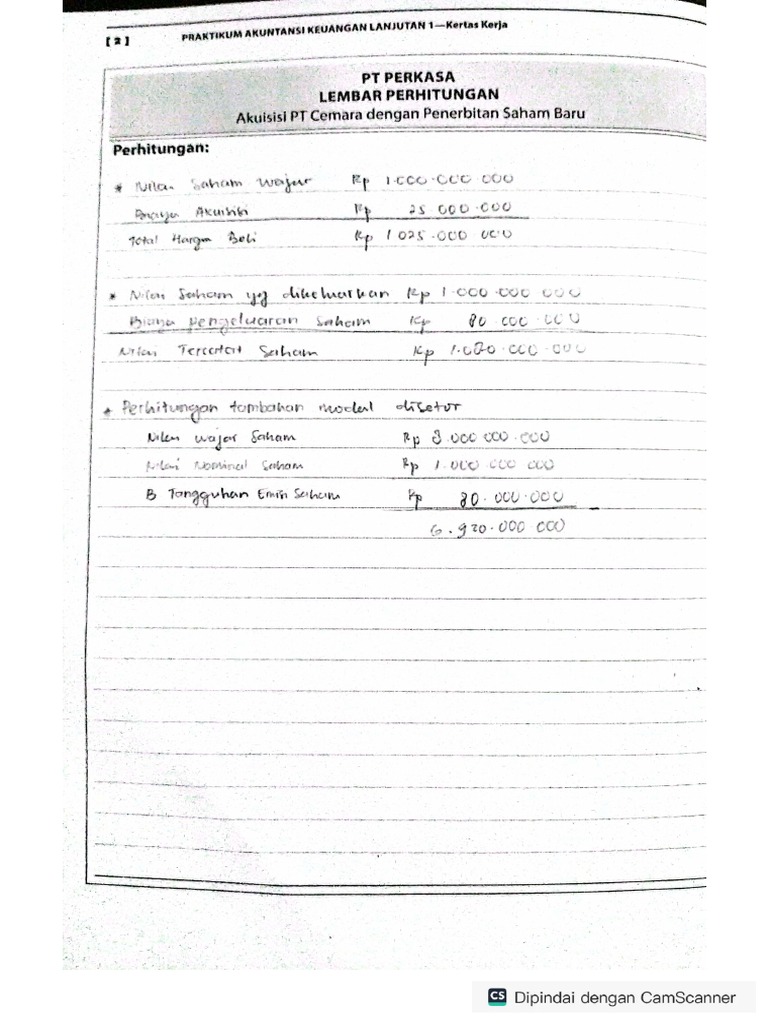 [ 2 ] PRAKTIKUM AKUNTANSI KEUANGAN LANJUTAN 1—Kertas Kerja
PT PERKASA
LEMBAR PERHITUNGAN
Akuisisi PT Cemara dengan Penerbitan Saham Baru
Perhitungan:
* Nilai Saham Wajar Rp 1.000.000 000
Biaya Akuisisi Rp 25 000.000
Total Harga Beli Rp 1 025.000 000
* Nilai Saham yg dikeluarkan Rp 1.000.000 000
Biaya pengeluaran Saham Rp 80 000.000
Nilai Tercatat Saham Rp 1.080.000.000
* Perhitungan tambahan modal disetor
Nilai wajar Saham Rp 8.000 000.000
Nilai Nominal Saham Rp 1.000 000 000
B Tangguhan Emisi Saham Rp 80.000.000
6.920.000 000
CS Dipindai dengan CamScanner